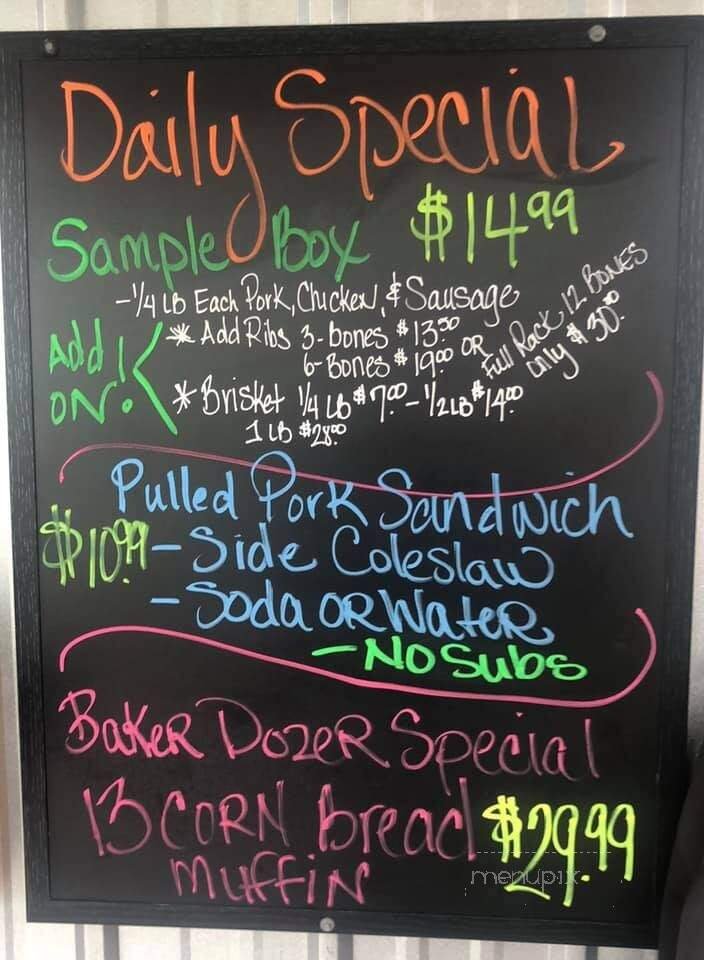 Daily Special
Sample Box $14.99
-1/4 LB Each Pork, Chicken, & Sausage
Add ON!
* Add Ribs 3-bones $13.50
6-Bones $19.00 OR
Full Rack 12 BONES
only $30.00
* Brisket 1/4 LB $7.00 - 1/2 LB $14.00
1 LB $28.00
Pulled Pork Sandwich
$10.99 - Side Coleslaw
- Soda OR Water
- No Subs
Baker Dozer Special
13 CORN Bread $29.99
Muffin
menupix